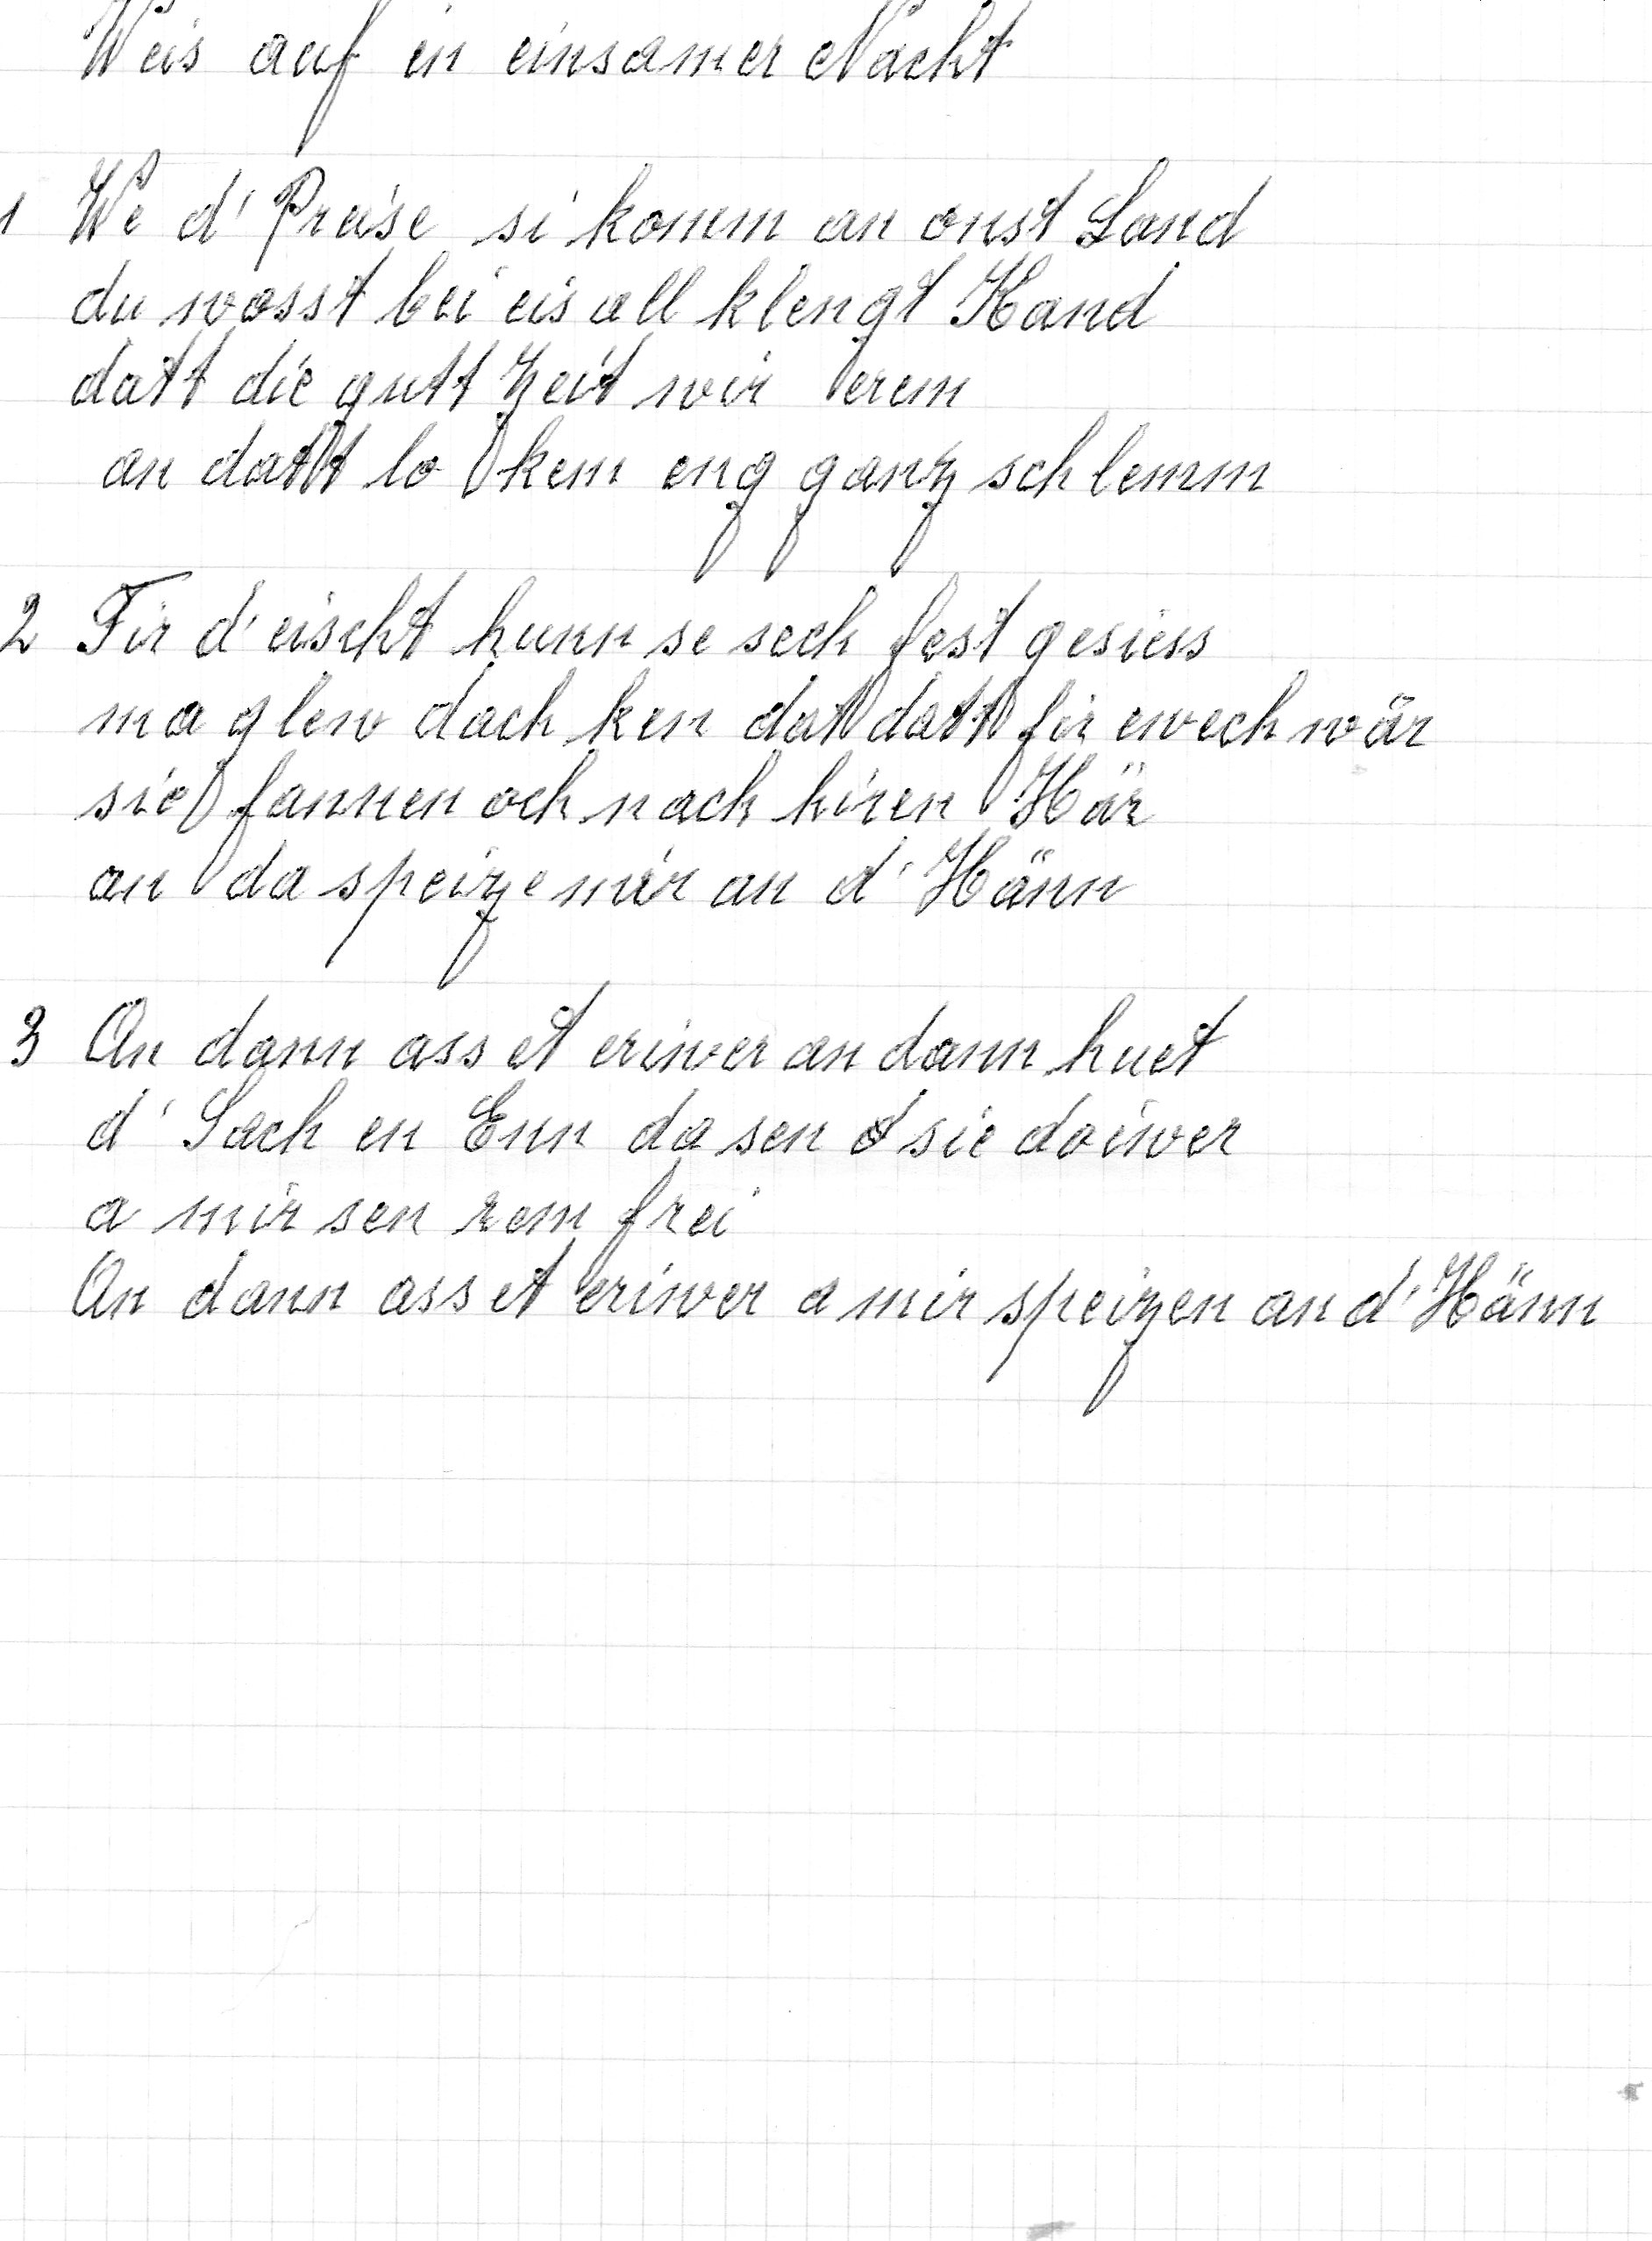 Weis auf in einsamer Nacht
1 We d' Preise si komm an onst Land
du wosst bei eis all klengt Kand
datt die gutt Zeit wir erem
an datt lo kem eng ganz schlemm
2 Fir d'eischt hunn se sech fest gesiess
ma glew dach ken dat datt fir ewech wär
sie fannen och nach hiren Här
an da speize mir an d' Hänn
3 An dann ass et eriwer an dann huet
d' Sach en Enn da sen sie doiwer
a mir sen rem frei
An dann ass et eriwer a mir speizen an d' Hänn